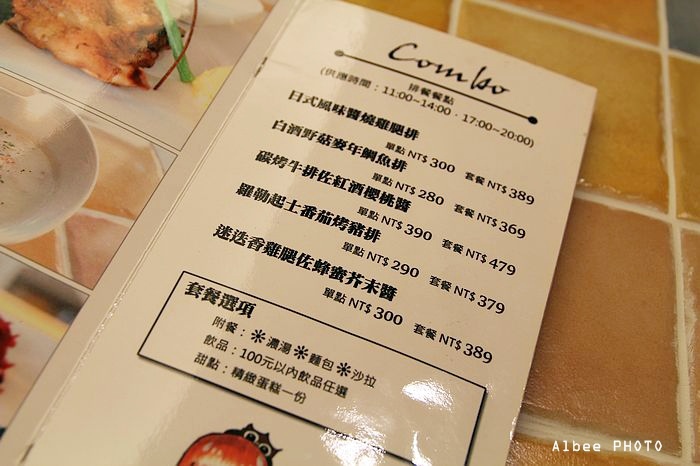 Combo
排餐餐點
(供應時間：11:00~14:00．17:00~20:00)
日式風味醬燒雞腿排
單點 NT$ 300 套餐 NT$ 389
白酒野菇麥年鯛魚排
單點 NT$ 280 套餐 NT$ 369
碳烤牛排佐紅酒櫻桃醬
單點 NT$ 390 套餐 NT$ 479
羅勒起士番茄烤豬排
單點 NT$ 290 套餐 NT$ 379
迷迭香雞腿佐蜂蜜芥末醬
單點 NT$ 300 套餐 NT$ 389
套餐選項
附餐：＊濃湯＊麵包＊沙拉
飲品：100元以內飲品任選
甜點：精緻蛋糕一份
Albee PHOTO